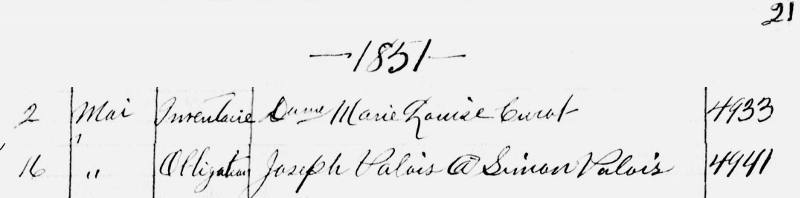 21
—1851—
2 Mai Inventaire Dame Marie Louise Curot 4933
16 " Obligation Joseph Valois @ Simon Valois 4941